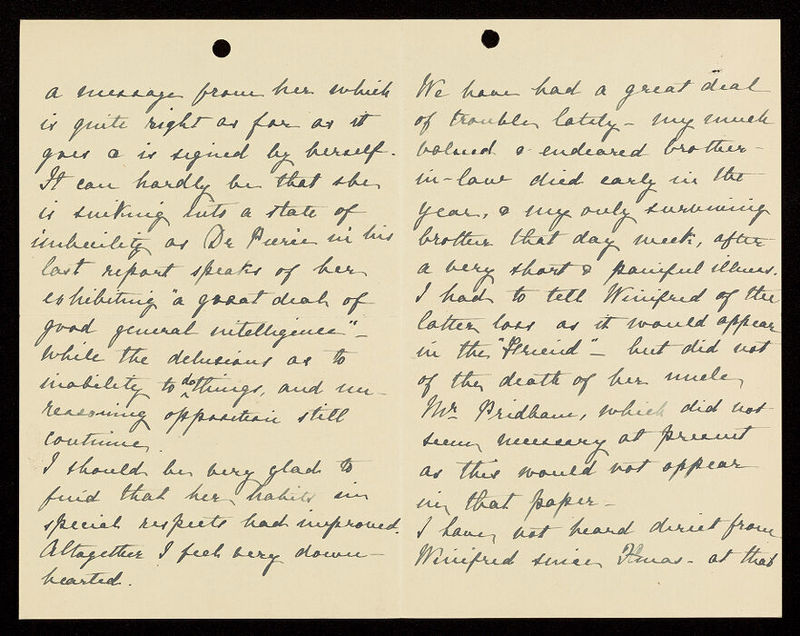 a message from her which
is quite right as far as it
goes & is signed by herself.
It can hardly be that she
is sinking into a state of
imbecility as Dr Pierce in his
last report speaks of her
exhibiting "a great deal of
good general intelligence" –
while the delusions as to
inability to do things, and un-
reasoning opposition still
continue.
I should be very glad to
find that her habits in
special respects had improved.
Altogether I feel very down-
hearted.
We have had a great deal
of trouble lately – my much
valued & endeared brother-
in-law died early in the
year, & my only surviving
brother that day week, after
a very short & painful illness.
I had to tell Winifred of the
latter loss as it would appear
in the "Friend" – but did not
of the death of her uncle
Mr Pridham, which did not
seem necessary at present
as this would not appear
in that paper –
I have not heard direct from
Winifred since Xmas – at that